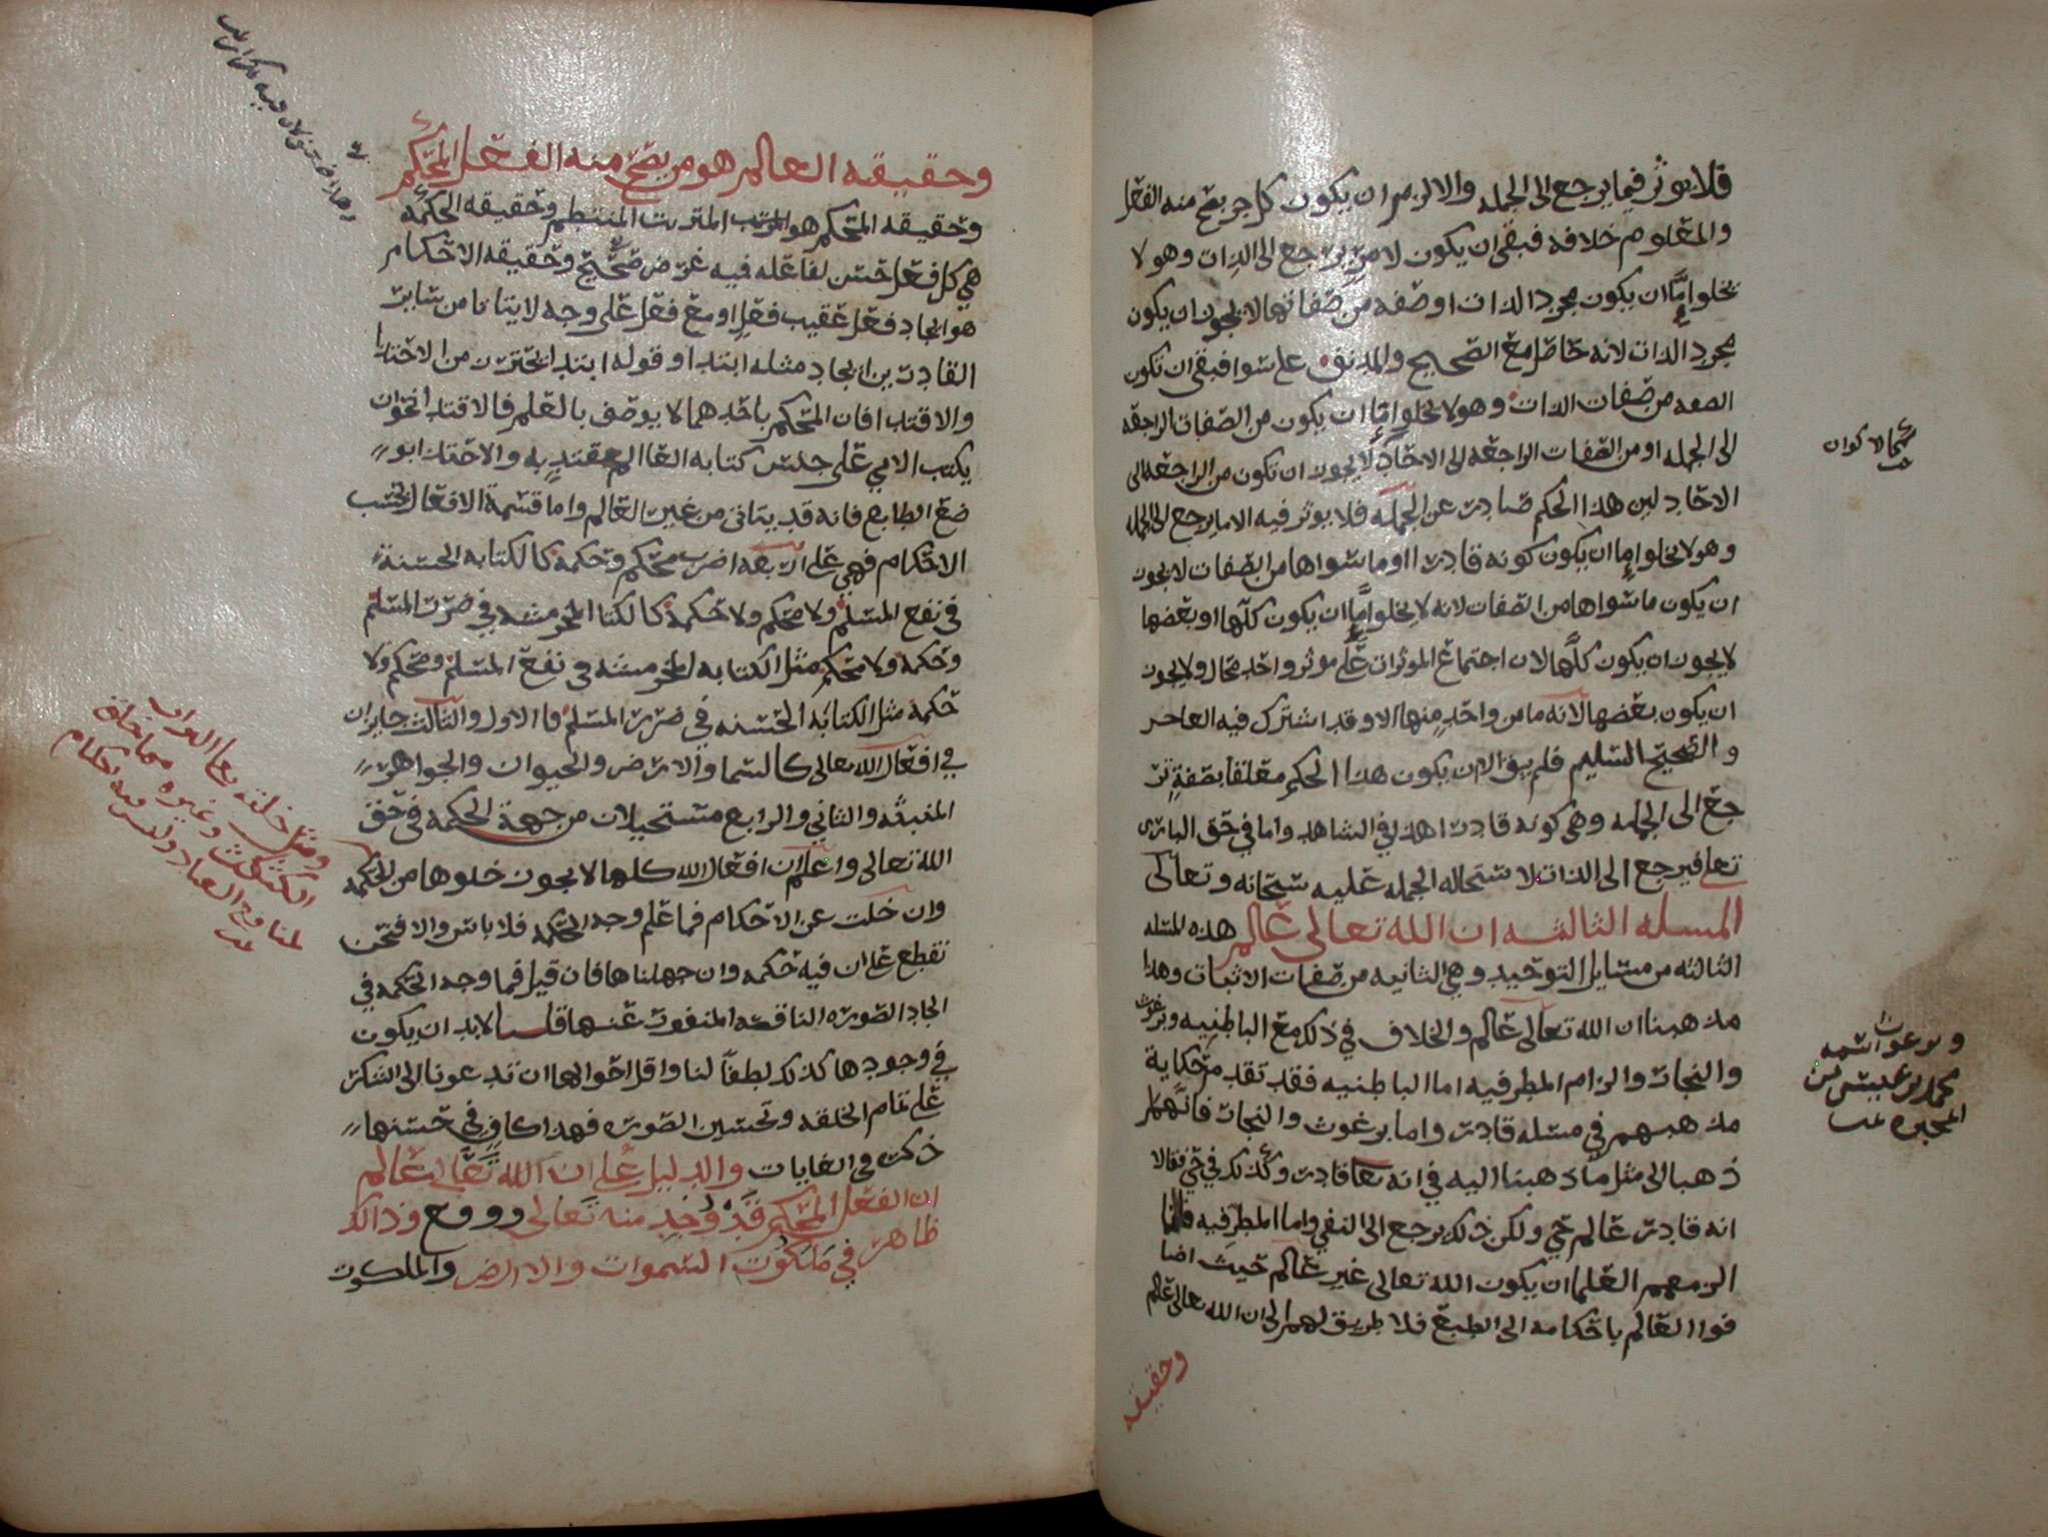 فلا يوثر فيما يرجع الى الجمله والا لزم ان يكون كل جز يصح منه الفعل
والمعلوم خلافه فبقى ان يكون لامر يرجع الى الذات وهو لا
يخلوا إمّا ان يكون مجرد الذات او صفه من صفاتها لا يجوز ان يكون
مجرد الذات لانه حاصل مع الصحيح والمدنف على سوا فبقى ان تكون
الصفه من صفات الذات وهو لا يخلوا إمّا ان يكون من الصفات الراجعه
الى الجمله او من الصفات الراجعه الى الاحاد لا يجوز ان تكون من الراجعه الى
الاحاد لين هذا الحكم صادر عن الجمله فلا يوثر فيه الا ما يرجع الى الجمله
وهو لا يخلوا إما ان يكون كونه قادرا او ما سواها من الصفات لا يجوز
ان يكون ما سواها من الصفات لانه لا يخلوا إمّا ان يكون كلّها او بعضها
لا يجوز ان يكون كلّها لان اجتماع الموثرات على موثر واحد محال ولا يجوز
ان يكون بعضها لانه ما من واحدٍ منها الا وقد اشترك فيه العاجز
والصحيح السليم فلم يبق الا ان يكون هذا الحكم معلقا بصفةٍ تر
جع الى الجمله وهي كونه قادرا هذا في الشاهد واما في حق الباري
تعالى فيرجع الى الذات لاستحاله الجمله عليه سبحانه وتعالى
المسله الثالثه ان الله تعالى عالم هذه المسله
الثالثه من مسايل التوحيد وهي الثانيه من صفات الاثبات وهذا
مذهبنا ان الله تعالى عالم والخلاف في ذلك مع الباطنيه وبرغوث
والنجار والزام المطرفيه اما الباطنيه فقد تقدم حكاية
مذهبهم في مسله قادر واما برغوث والنجار فانهما
ذهبا الى مثل ما ذهبنا اليه في انه تعالى قادر وكذلك في حي فقالا
انه قادر عالم حي ولكن ذلك يرجع الى النفي واما المطرفيه فانما
الزمهم العلما ان يكون الله تعالى غير عالم حيث اضا
فوا العالم باحكامه الى الطبع فلا طريق لهم الى ان الله تعالى عالم
وحقيقه
وبرغوث اسمه
محمد بن عيسى من
المجبره
وحقيقه العالم هو من يصح منه الفعل المحكم
وحقيقه المحكم هو المرتب المنتظم وحقيقه الحكمه
هي كل فعل حسن لفاعله فيه غرض صحيح وحقيقه الاحكام
هو ايجاد فعل عقيب فعلٍ او مع فعل على وجه لا يتاتا من ساير
القادرين ايجاد مثله ابتدا وقوله ابتدا يحترز من الاحتذا
والاقتدا فان المحكم باحدهما لا يوصف بالعلم فالاقتدا نحو ان
يكتب الامي على جنس كتابه العالم مقتدٍ به والاحتذا
ضع الطابع فانه قد يتاتى من غير العالم واما قسمة الافعال بحسب
الاحكام فهي على اربعه اضرب محكم وحكمه كالكتابه الحسنة
في نفع المسلم ولا محكم ولا حكمه المخرمشه في ضرر المسلم
وحكمه ولا محكم مثل الكتابه المخرمشه في نفع المسلم ومحكم ولا
حكمه مثل الكتابه الحسنه في ضرر المسلم فالاول والثالث جايزان
في افعال الله تعالى كالسما والارض والحيوان والجواهر
المنبثه والثاني والرابع مستحيلان من جهة الحكمه في حق
الله تعالى واعلم ان افعال الله كلها لا يجوز خلوها من الحكمه
وان خلت عن الاحكام فما علم وجه الحكمه فلا باس والا فنحن
نقطع على ان فيه حكمه وان جهلناها فان قيل فما وجه الحكمه في
ايجاد الصوره الناقصه المنفور عنها قلنا لا بد ان يكون
في وجودها كذلك لطفاً لنا واقل احوالها ان تدعونا الى الشكر
على تمام الخلقه وتحسين الصوره فهذا كافٍ في حسنها
ذكره في الغايات والدليل على ان الله تعالى عالم
ان الفعل المحكم قد وُجد منه تعالى ووقع وذالك
ظاهر في ملكوت السموات والارض والملكوت